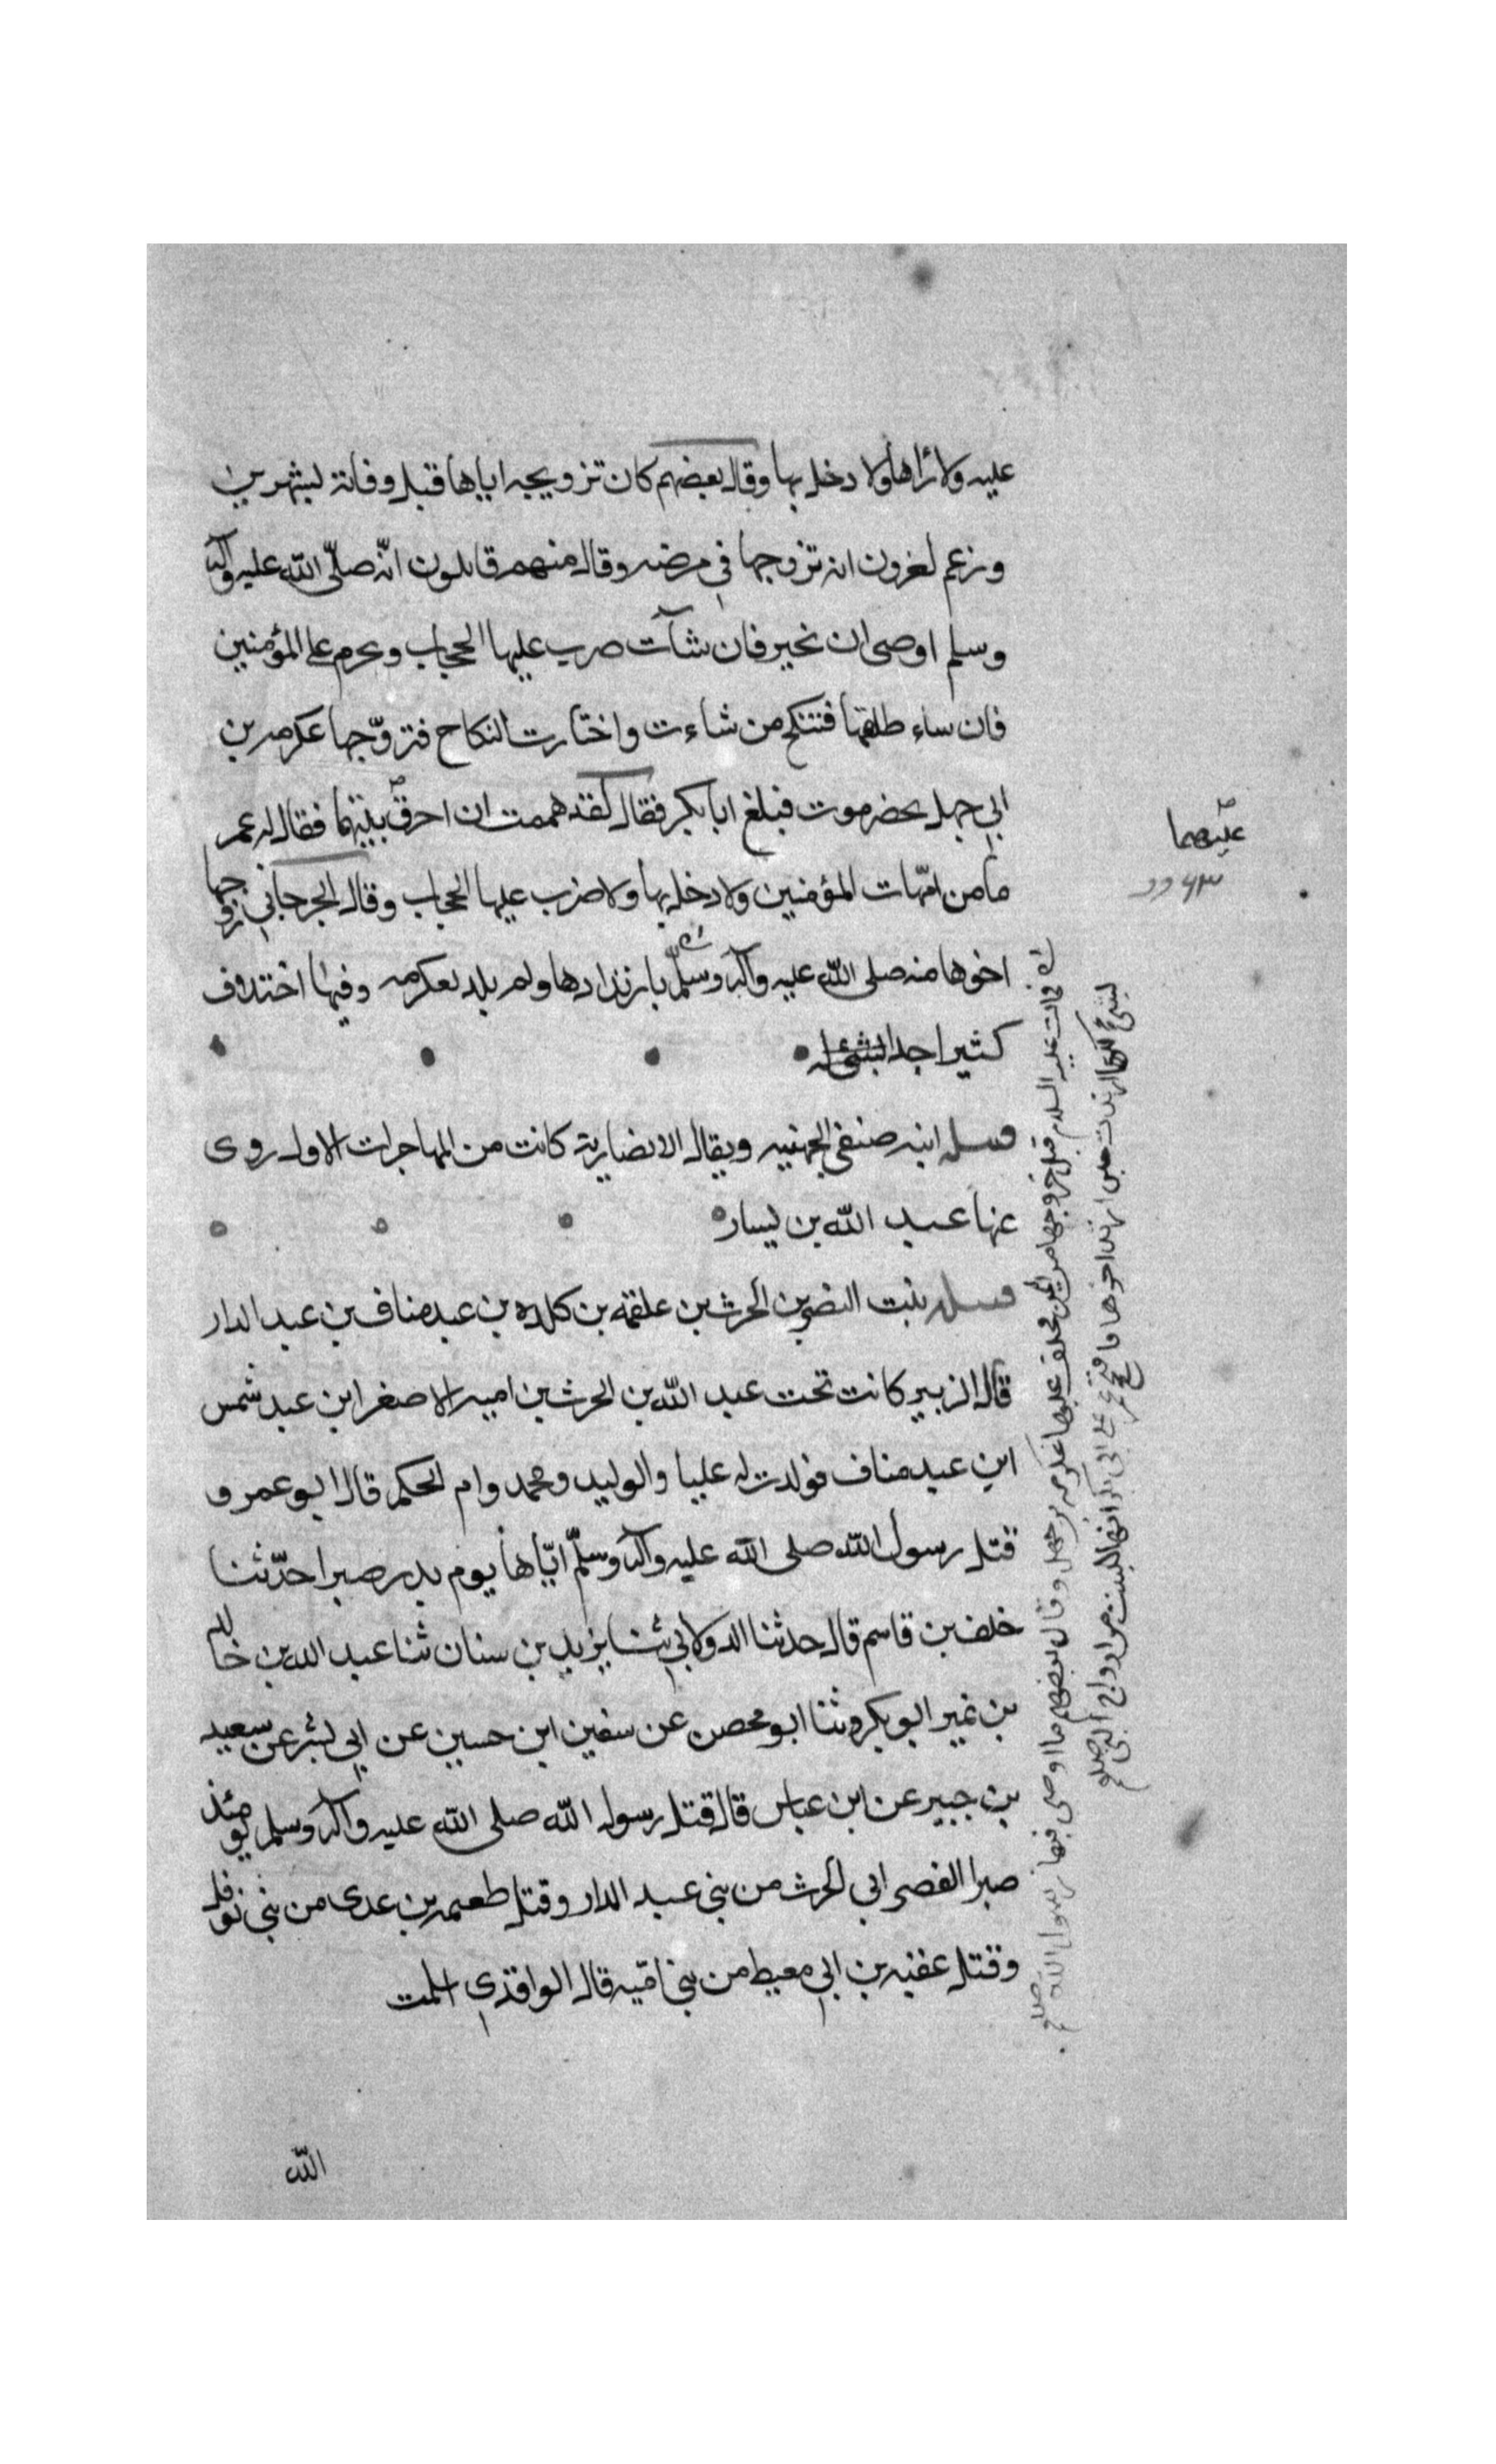 عليه ولا رأاها ولا دخل بها وقال بعضهم كان تزويجه اياها قبل وفاتة لبشهرين
وزعم لغرون انه تزوجها في مرضه وقال منهم قايلون انّه صلّى الله عليه وآله
وسلم اوصى ان نخير فان شآت ضرب عليها الحجاب ونحرم على المؤمنين
فان ساء طلقها فتنكح من شاءت واختارت النكاح فتزوّجها عكرمه بن
ابي جهل بحضرموت فبلغ ابا بكر فقال لقد هممت ان احرق بيتهما فقال له عمر
ما من امّهات المؤمنين ولا دخل بها ولا ضرب عليها الحجاب وقال الجرجاني زوجها
اخوها منه صلى الله عليه وآله وسلّم بارتدادها ولم يلد لعكرمه وفيها اختلاف
كثيرا جدا
ابنه صنفي الجهنيه ويقال الانصارية كانت من المهاجرات الاول روى
عنها عبد الله بن يسار
بنت النضر بن الحرث بن علقمه بن كلده بن عبد مناف بن عبد الدار
قال الزبير كانت تحت عبد الله بن الحرث بن اميه الاصغر ابن عبد شمس
ابن عبد مناف فولدت له عليا والوليد ومحمد وام الحكم قال ابو عمر و
قتل رسول الله صلى الله عليه وآله وسلّم ايّاها يوم بدر صبرا حدّثنا
خلف بن قاسم قال حدثنا الدولابي ثنا يزيد بن سنان ثنا عبد الله بن خالد
بن نمير ابو بكر وثنا ابو محصن عن سفين ابن حسين عن ابي بشر عن سعيد
بن جبير عن ابن عباس قال قتل رسول الله صلى الله عليه وآله وسلم يومئذ
صبرا ابي الحرث من بني عبد الدار وقتل طعيمه بن عدى من بني نوفل
وقتل عقبه بن ابي معيط من بني اميّه قال الواقدي اسلمت
الله
عليهما
فمات عليه السلام قبل خروجها من اليمن فخلف عليها عكرمه بن جهل وقال بعضهم ما اوصى فيها رسول الله صلعم
لبشئ ولكنها ارتدت حين ارتد اخوها فاحتج عمر على ابي بكر انها ليست من ازواج النبي صلعم